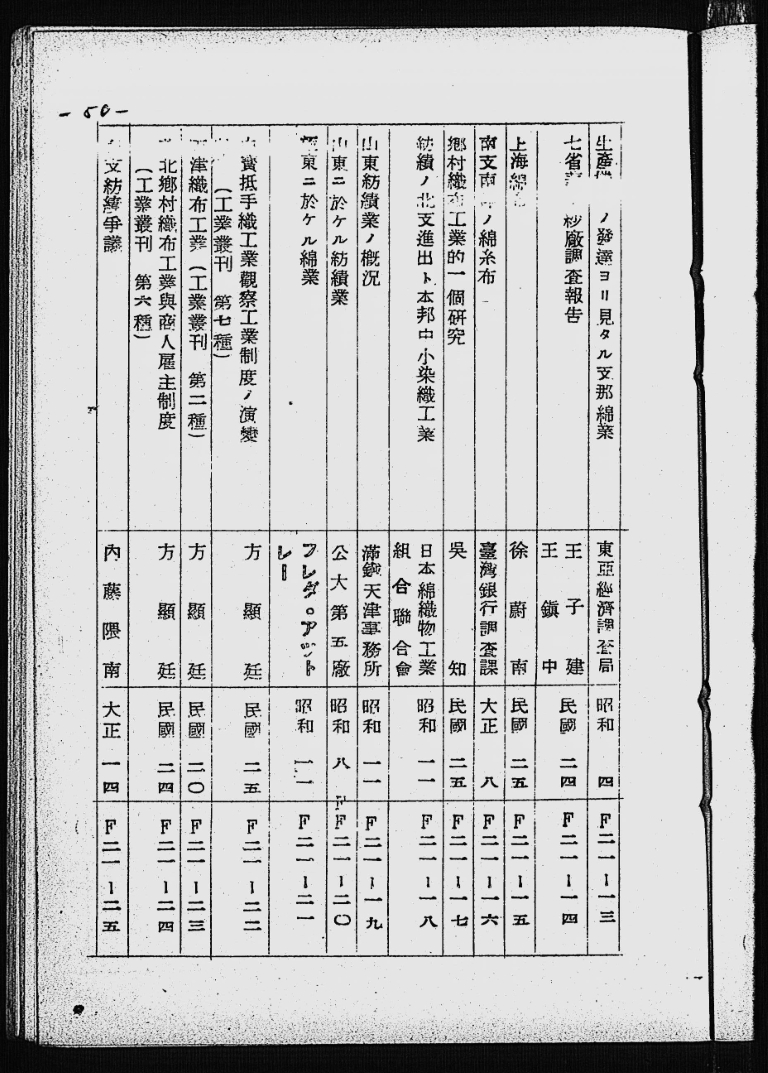 - 50 -
生產 ノ發達ヨリ見タル支那綿業 東亞經濟調査局 昭和 四 F二一-一三
七省 紗廠調査報告 王子建 王鎭中 民國 二四 F二一-一四
上海綿 徐蔚南 民國 二五 F二一-一五
南支南 ノ綿糸布 臺灣銀行調査課 大正 八 F二一-一六
鄕村織布工業的一個硏究 吳知 民國 二五 F二一-一七
紡績ノ北支進出ト本邦中小染織工業 日本綿織物工業組合聯合會 昭和 一一 F二一-一八
山東紡績業ノ槪況 滿鐵天津事務所 昭和 一一 F二一-一九
山東ニ於ケル紡績業 公大第五廠 昭和 八 F二一-二〇
東ニ於ケル綿業 フレダ。アット
レー 昭和 一一 F二一-二一
寶抵手織工業觀察工業制度ノ演變
(工業叢刊 第七種) 方顯廷 民國 二五 F二一-二二
津織布工業(工業叢刊 第二種) 方顯廷 民國 二〇 F二一-二三
北鄕村織布工業與商人雇主制度
(工業叢刊 第六種) 方顯廷 民國 二四 F二一-二四
支紡績爭議 內藤隈南 大正 一四 F二一-二五